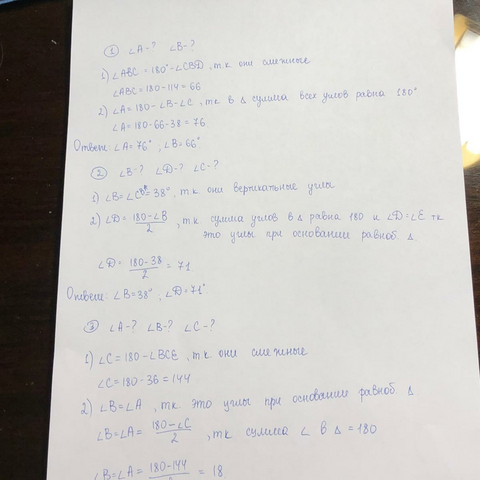 ① ∠A-? ∠B-?
1) ∠ABC = 180° - ∠CBD, т.к они смежные
∠ABC = 180 - 114 = 66
2) ∠A = 180 - ∠B - ∠C, т.к в Δ сумма всех углов равна 180°
∠A = 180 - 66 - 38 = 76
Ответ: ∠A = 76°, ∠B = 66°
② ∠B-? ∠D-? ∠C-?
1) ∠B = ∠C = 38°, т.к. они вертикальные углы
2) ∠D = (180 - ∠B)/2, т.к. сумма углов в Δ равна 180 и ∠D = ∠E тк
это углы при основании равноб Δ
∠D = (180 - 38)/2 = 71
Ответ: ∠B = 38°, ∠D = 71°
③ ∠A-? ∠B-? ∠C-?
1) ∠C = 180 - ∠BCE, т.к они смежные
∠C = 180 - 36 = 144
2) ∠B = ∠A, тк это углы при основании равноб Δ
∠B = ∠A = (180 - ∠C)/2, тк сумма ∠ в Δ = 180
∠B = ∠A = (180 - 144)/2 = 18